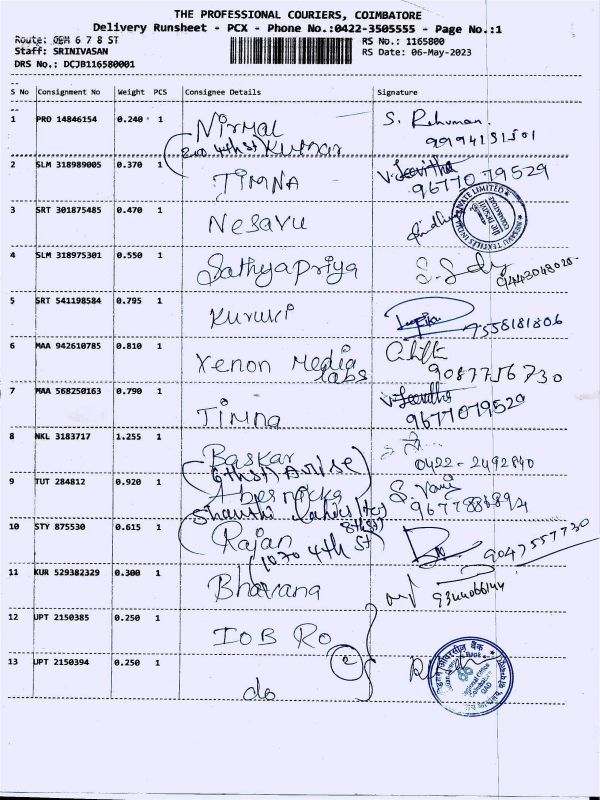 THE PROFESSIONAL COURIERS, COIMBATORE
Delivery Runsheet - PCX - Phone No.:0422-3505555 - Page No.:1
Route: OEM 6 7 8 ST
Staff: SRINIVASAN
DRS No.: DCJB116580001
RS No.: 1165800
RS Date: 06-May-2023
S No Consignment No Weight PCS Consignee Details Signature
1 PRO 14846154 0.240 1 Nirmal S. Rehuman.
4th st Kumar 9994151501
2 SLM 318989005 0.370 1 TIMNA V. Jeevitha
9677079529
3 SRT 301875485 0.470 1 Nesavu
4 SLM 318975301 0.550 1 Sathyapriya
9443048028
5 SRT 541198584 0.795 1 Kuruki
9558181806
6 MAA 942610785 0.810 1 Xenon Media
labs 9087756730
7 MAA 568250163 0.790 1 Timna V. Jeevitha
9677079529
8 NKL 3183717 1.255 1 Baskar
(6th st) 0422-2492840
9 TUT 284812 0.920 1 S. Vani
9677886894
Shanthi (8th st)
10 STY 875530 0.615 1 Rajan 9047557730
(1070 4th st
11 KUR 529382329 0.300 1 Bhavana 9344066144
12 UPT 2150385 0.250 1 IOB RO
13 UPT 2150394 0.250 1 do